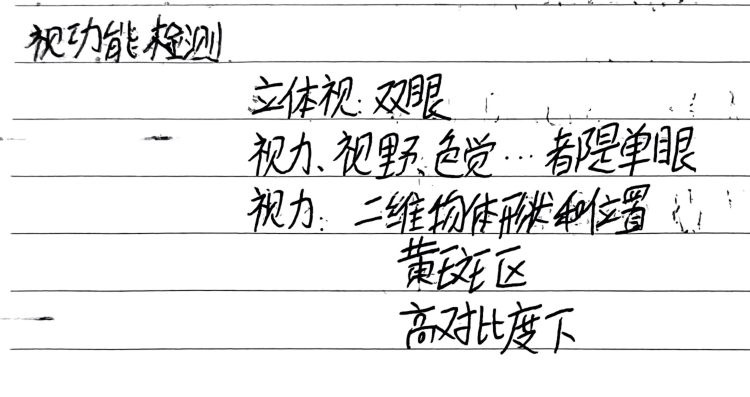 视功能检测
立体视：双眼
视力、视野、色觉…都是单眼
视力：二维物体形状和位置
黄斑区
高对比度下